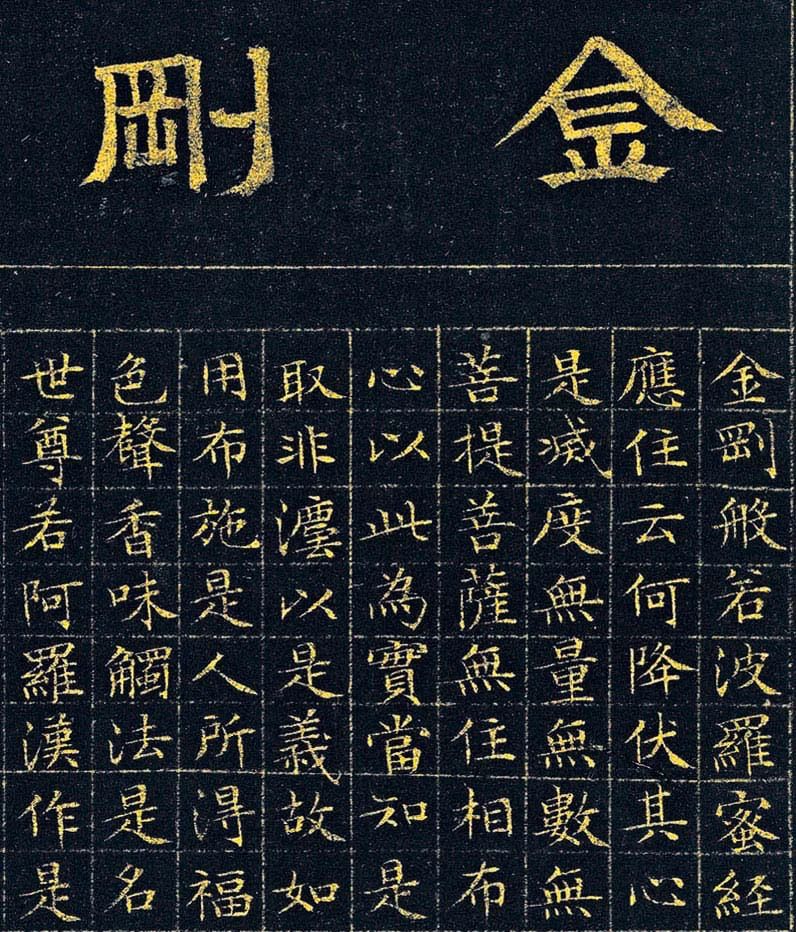 金剛
金剛般若波羅蜜経
應住云何降伏其心
是滅度無量無數無
菩提菩薩無住相布
心以此為實當知是
取非灋以是義故如
用布施是人所得福
色聲香味觸法是名
世尊若阿羅漢作是